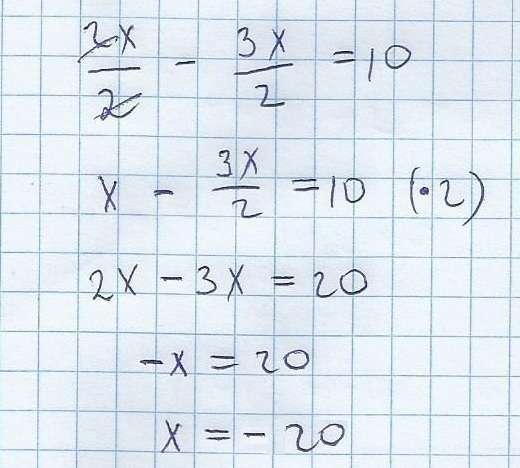 2x/2 - 3x/2 = 10
x - 3x/2 = 10 (·2)
2x - 3x = 20
-x = 20
x = -20